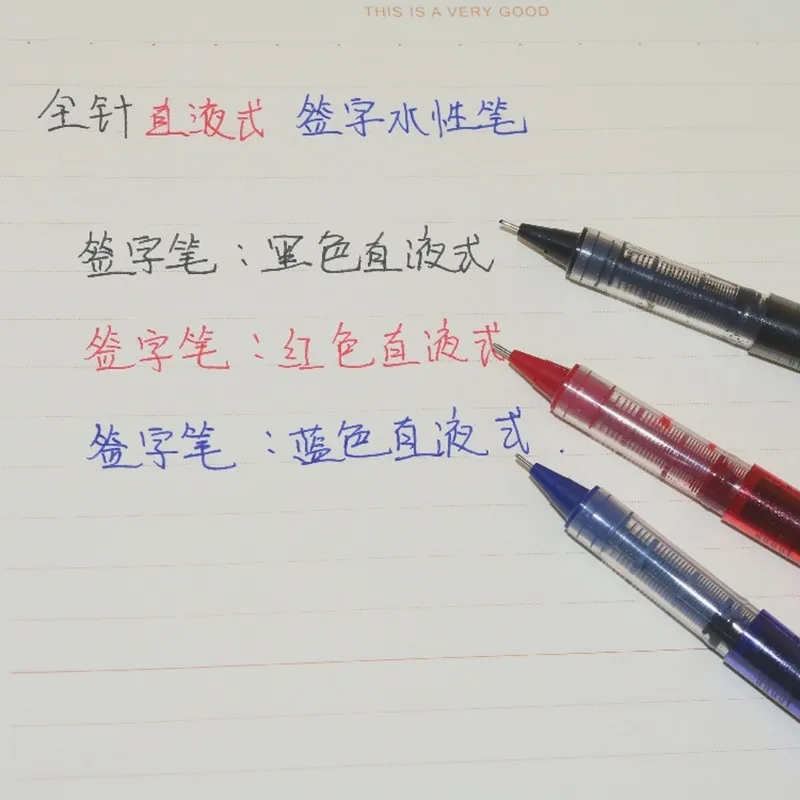 THIS IS A VERY GOOD
全针直液式 签字水性笔
签字笔：黑色直液式
签字笔：红色直液式
签字笔：蓝色直液式.